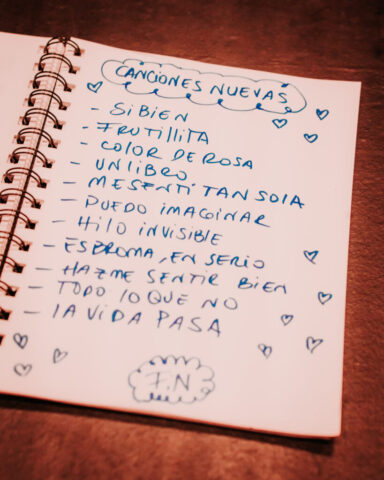 CANCIONES NUEVAS
- SI BIEN
- FRUTILLITA
- COLOR DE ROSA
- UN LIBRO
- ME SENTÍ TAN SOLA
- PUEDO IMAGINAR
- HILO INVISIBLE
- ES BROMA, EN SERIO
- HAZME SENTIR BIEN
- TODO LO QUE NO
- LA VIDA PASA
F.N